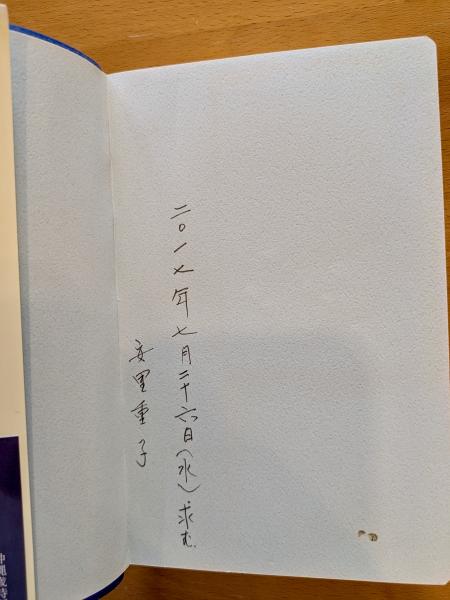 二〇一七年七月二十六日(水)求む
安里重子
沖縄歳時